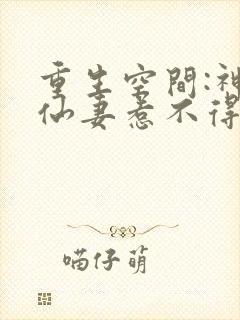 重生空間:神
仙妻惹不得
喵仔萌